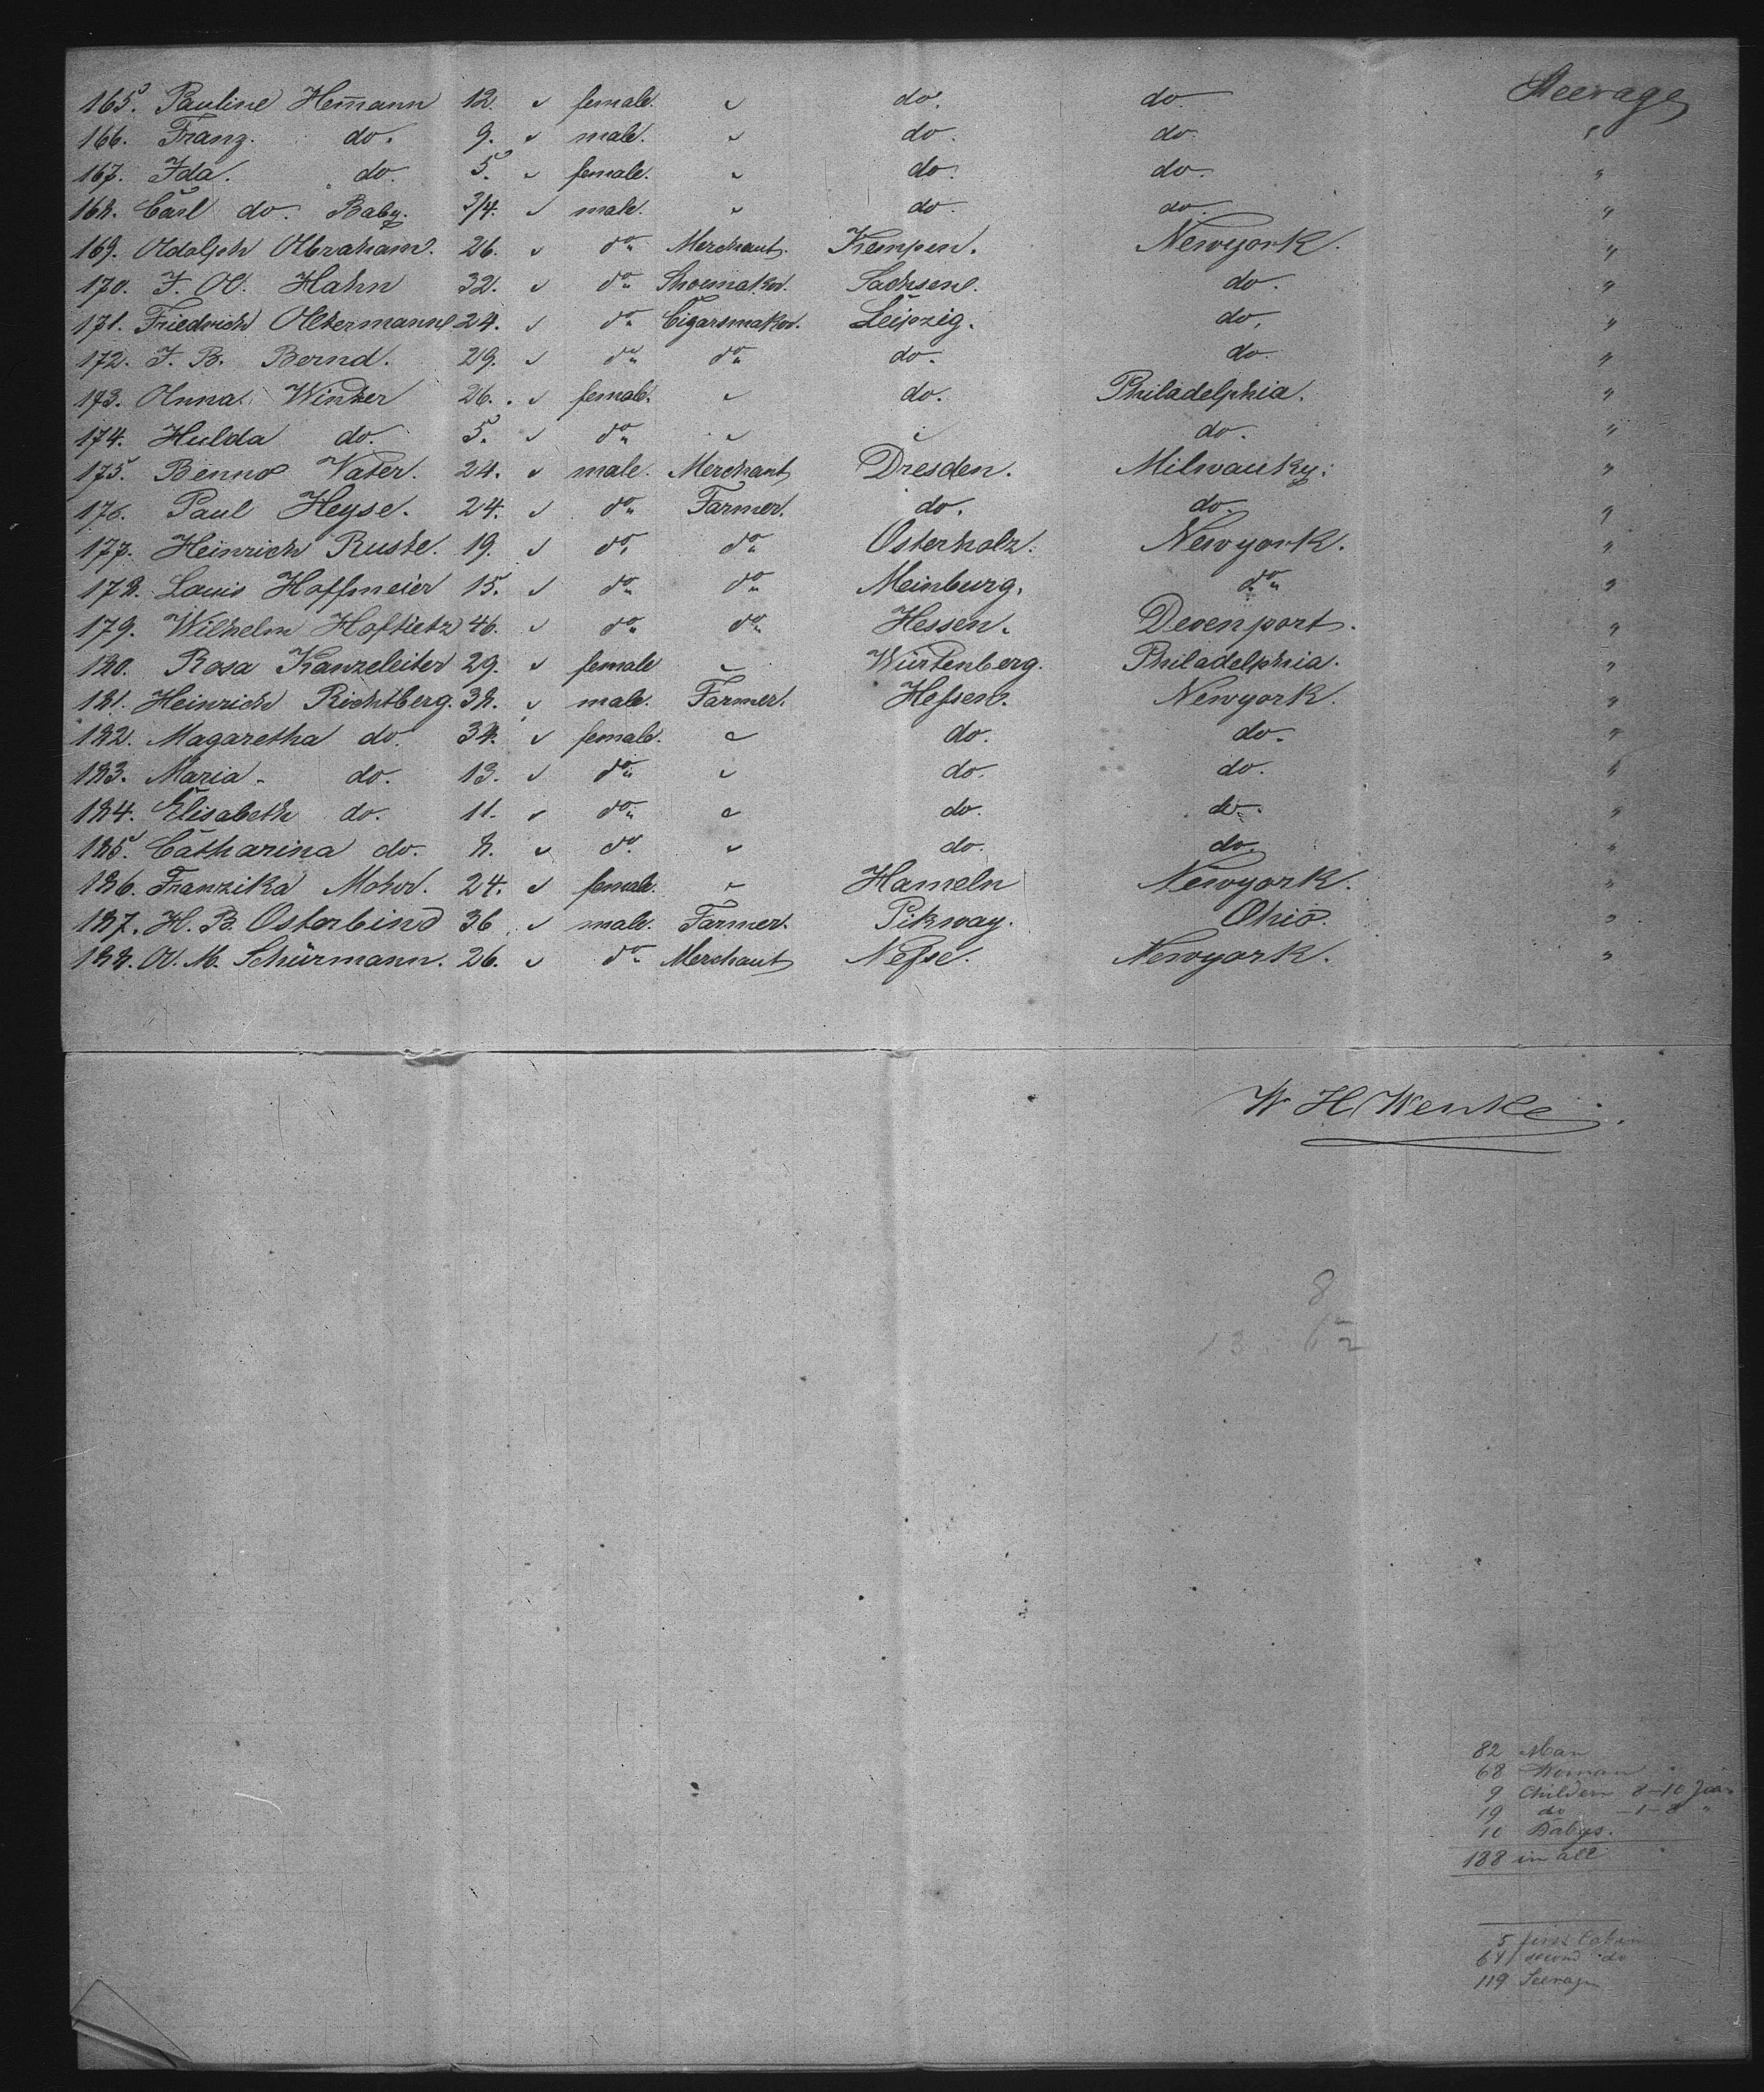 165. Pauline Hem̄ann 12. " female. " do. do. Steerage
166. Franz. do. 9. " male. " do. do. "
167. Ida. do. 5. " female. " do. do. "
168. Carl do. Baby. 3/4. " male. " do. do. "
169. Adolph Abraham. 26. " do Merchant. Kempen. Newyork. "
170. F. A. Hahn 32. " do Shoemaker. Sachsen. do. "
171. Friedrich Altermann 24. " do Cigarsmaker. Leipzig. do. "
172. F. B. Bernd. 29. " do do do. do. "
173. Anna Winter 26. " female. " do. Philadelphia. "
174. Hulda do. 5. " do " " do. "
175. Benno Vater. 24. " male. Merchant Dresden. Milwauky. "
176. Paul Heyse. 24. " do Farmer. do. do. "
177. Heinrich Ruste. 19. " do do Osterholz. Newyork. "
178. Louis Hoffmeier 15. " do do Meinburg. do "
179. Wilhelm Hoftietz 46. " do do Hessen. Devenport. "
180. Rosa Kanzeleiter 29. " female " Würtenberg. Philadelphia. "
181. Heinrich Richtberg. 38. " male. Farmer. Hessen. Newyork. "
182. Magaretha do. 38. " female. " do. do. "
183. Maria. do. 13. " do " do. do. "
184. Elisabeth do. 11. " do " do. do. "
185. Catharina do. 8. " do. " do. do. "
186. Franzika Mohr. 24. " female. " Hameln Newyork. "
187. H. B. Osterbind 36 " male. Farmer. Pikway. Ohio. "
188. A. M. Schürmann. 26. " do Merchant Nesse. Newyork. "
W H Wenke
8
13
82 Man
68 Woman
9 Childern 8-10 Jear
19 do -1-8 "
10 Babys.
188 in all
5 first Cabin
64 second do
119 Seerage